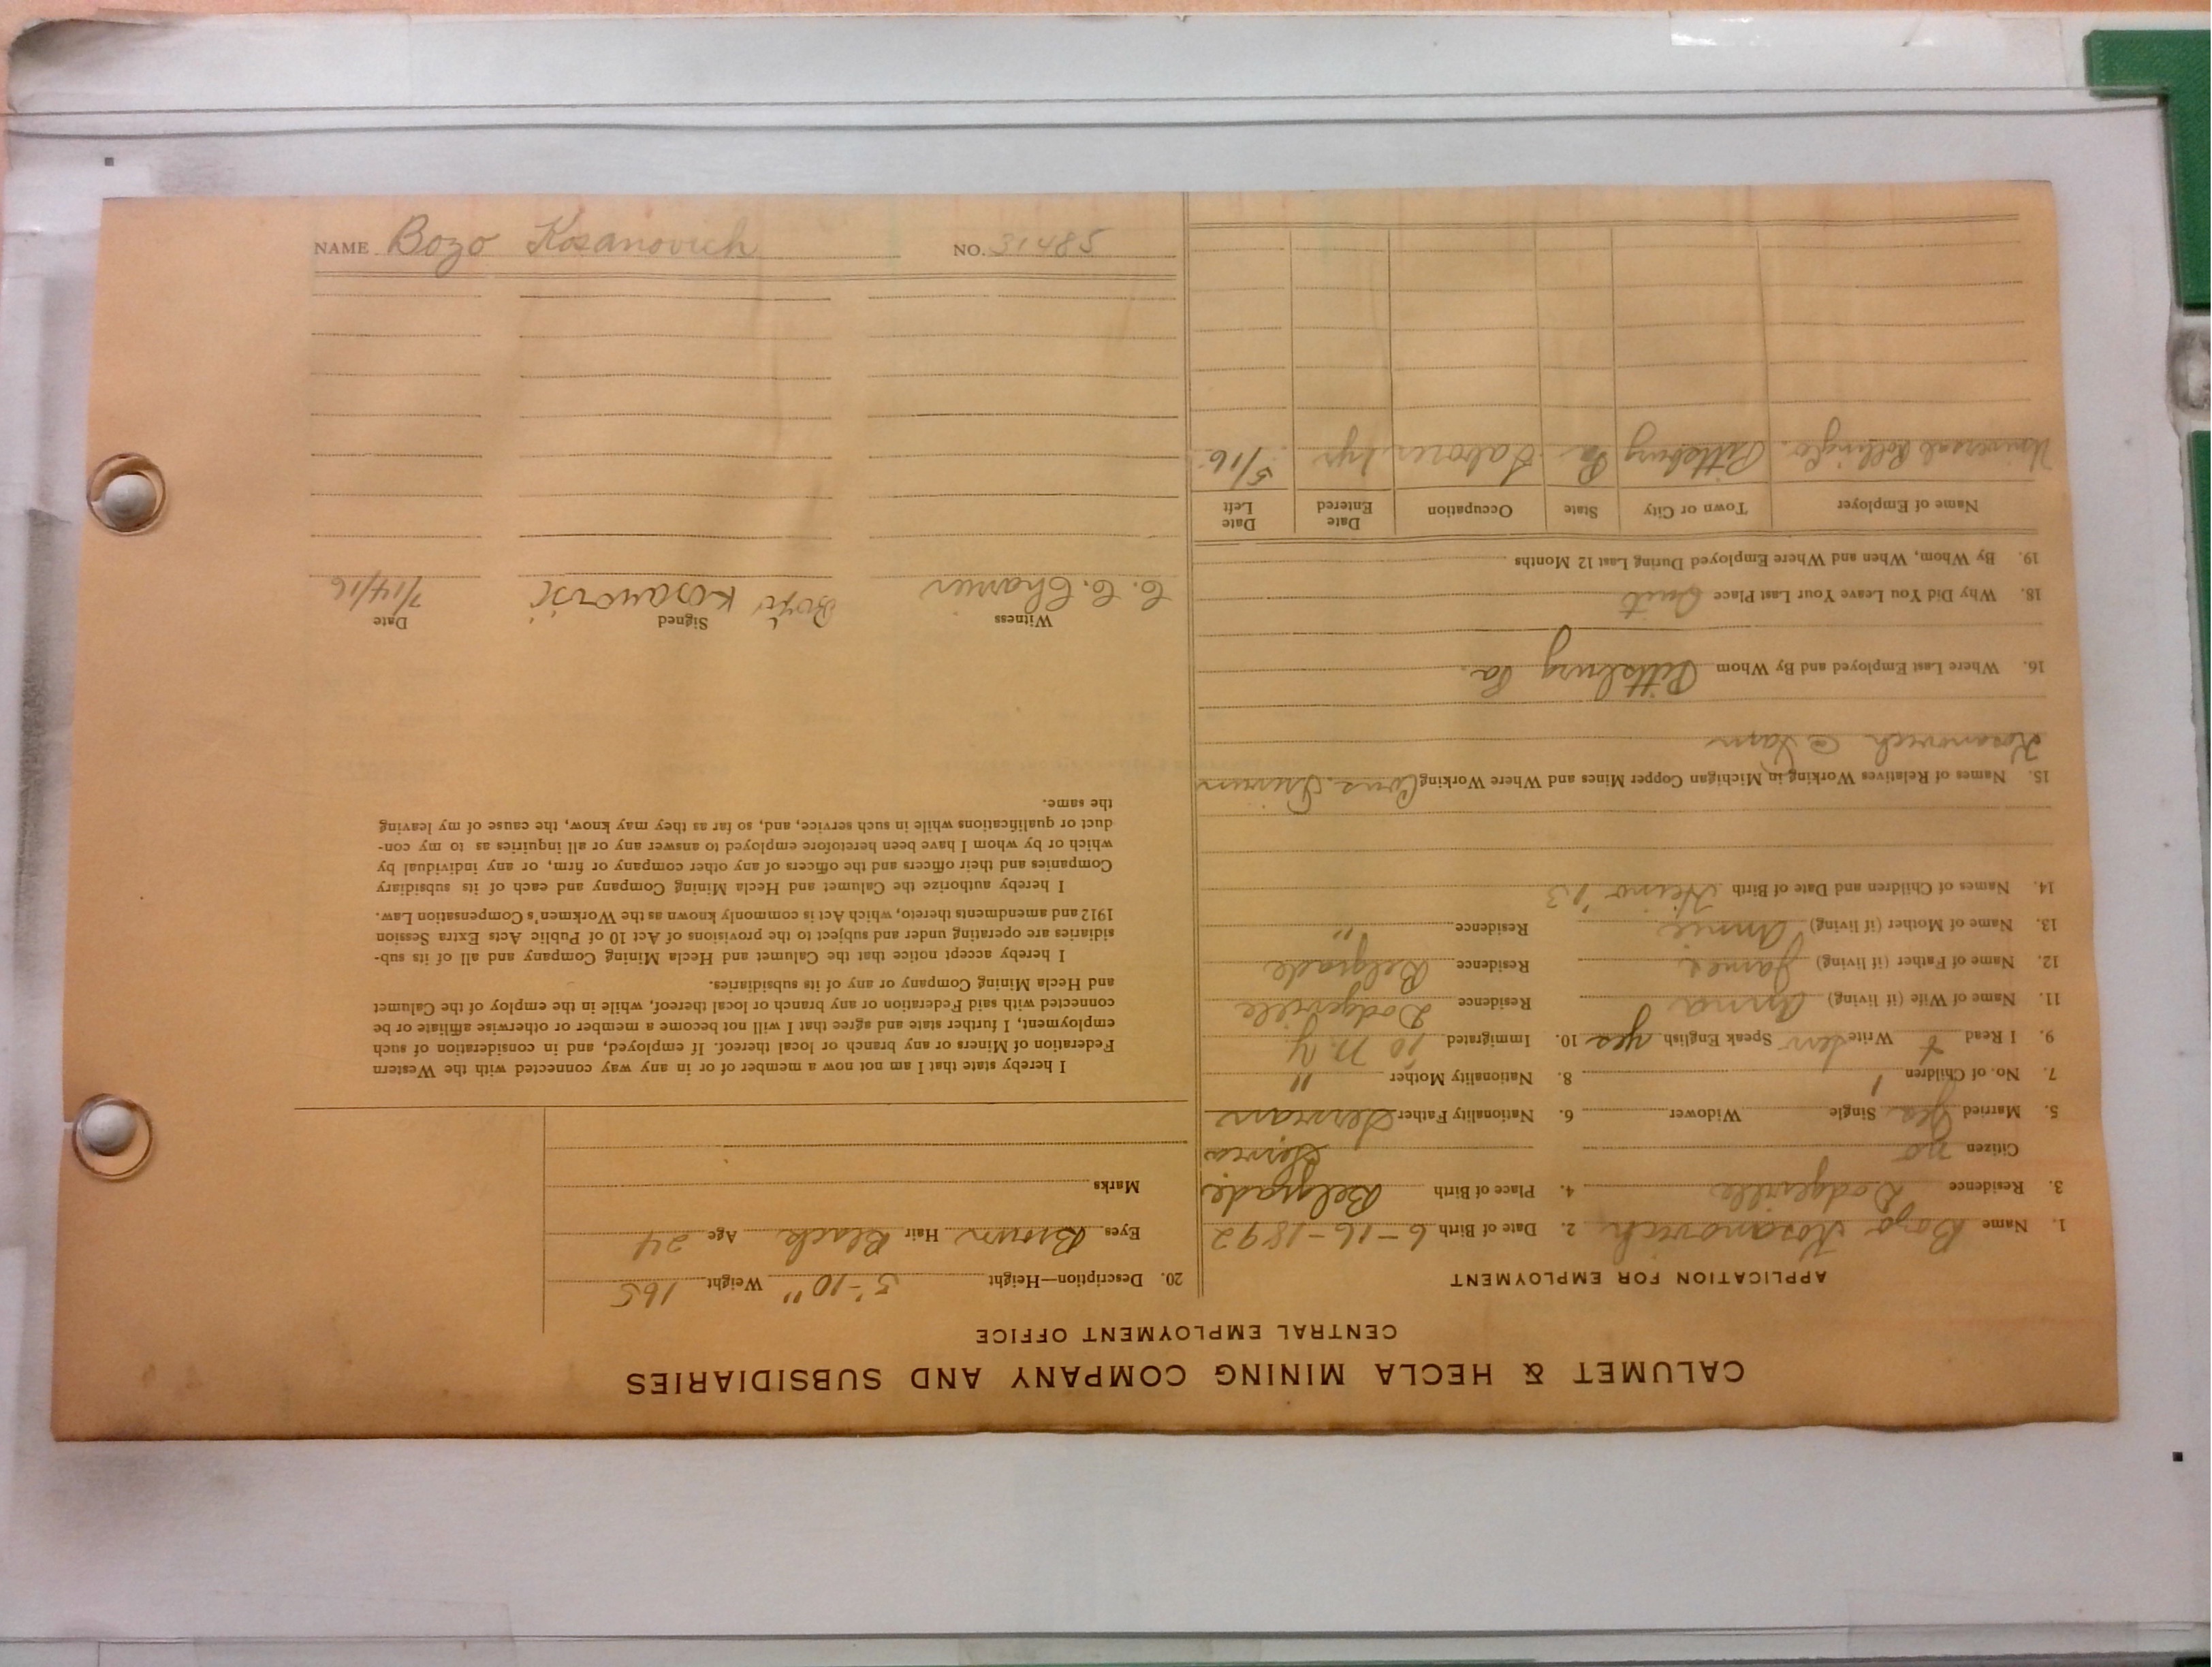 CALUMET & HECLA MINING COMPANY AND SUBSIDIARIES
CENTRAL EMPLOYMENT OFFICE
APPLICATION FOR EMPLOYMENT
1. Name Bozo Kosanovich 2. Date of Birth 6-16-1892
3. Residence Dodgeville 4. Place of Birth Belgrade
Citizen no Servia
5. Married Yes Single Widower 6. Nationality Father Servian
7. No. of Children 1 8. Nationality Mother "
9. I Read & Write Serv Speak English yes 10. Immigrated '10 N.Y
11. Name of Wife (if living) Anna Residence Dodgeville
12. Name of Father (if living) James Residence Belgrade
13. Name of Mother (if living) Annie Residence "
14. Names of Children and Date of Birth Heino '13
15. Names of Relatives Working in Michigan Copper Mines and Where Working Cous.
Kosanovich @
16. Where Last Employed and By Whom Pittsburg Pa.
18. Why Did You Leave Your Last Place Quit
19. By Whom, When and Where Employed During Last 12 Months
Name of Employer Town or City State Occupation Date Entered Date Left
Universal Rolling Co. Pittsburg Pa Laborer 1 yr 5/16
20. Description—Height 5'-10" Weight 165
Eyes Brown Hair Black Age 24
Marks
I hereby state that I am not now a member of or in any way connected with the Western
Federation of Miners or any branch or local thereof. If employed, and in consideration of such
employment, I further state and agree that I will not become a member or otherwise affiliate or be
connected with said Federation or any branch or local thereof, while in the employ of the Calumet
and Hecla Mining Company or any of its subsidiaries.
I hereby accept notice that the Calumet and Hecla Mining Company and all of its sub-
sidiaries are operating under and subject to the provisions of Act 10 of Public Acts Extra Session
1912 and amendments thereto, which Act is commonly known as the Workmen's Compensation Law.
I hereby authorize the Calumet and Hecla Mining Company and each of its subsidiary
Companies and their officers and the officers of any other company or firm, or any individual by
which or by whom I have been heretofore employed to answer any or all inquiries as to my con-
duct or qualifications while in such service, and, so far as they may know, the cause of my leaving
the same.
Witness Signed Date
C. C. Kosanović 7/14/16
NAME Bozo Kosanovich NO. 31485